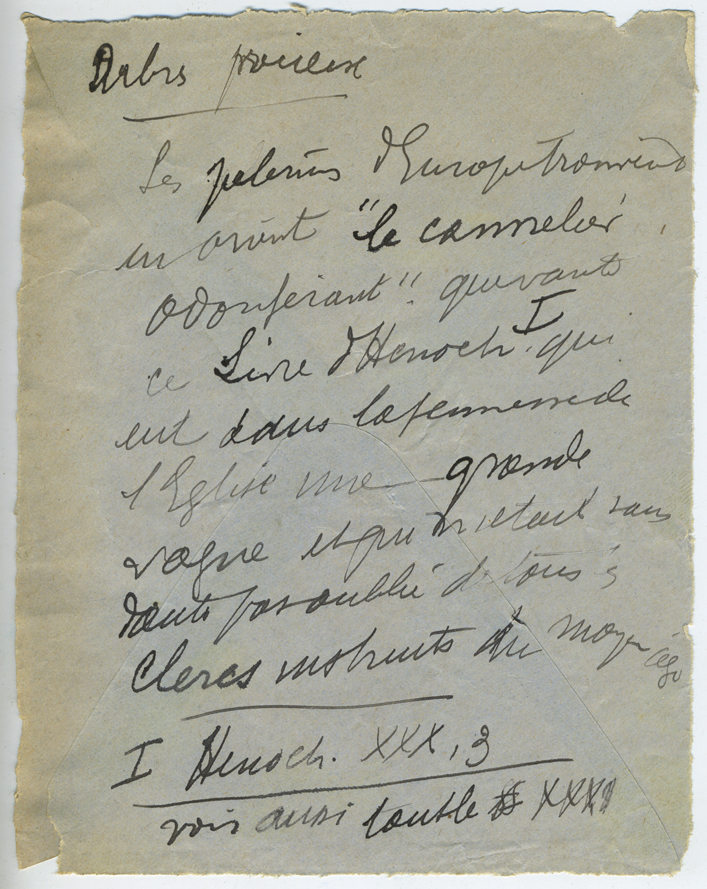 Arbres précieux
Les pelerins d'Europe trouvent
en orient "le cannelier
odoriférant" que vante
ce Livre d'Henoch I qui
eut dans la jeunesse de
l'Eglise une grande
vogue et qui n'etait sans
doute pas oublié de tous les
clercs instruits du moyen âge
I Henoch. XXX, 3
voir aussi tout le XXXI